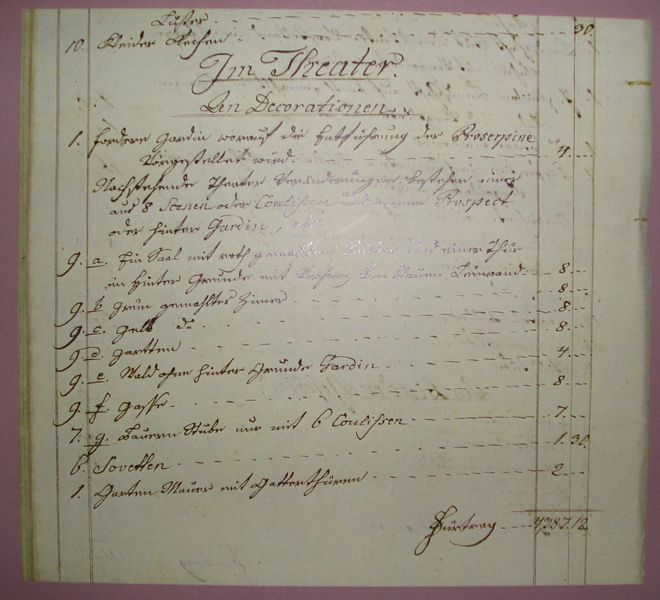 Luster. - - - 30.
10. Kleider Rechen - - -
Im Theater.
An Decorationen.
1. fordere Gardin worauf die Entführung der Proserpine
Vorgestellet wird. - - - 4.
Nachstehende Theater Veränderungen bestehen einer
aus 8 Scenen oder Coulissen und einem Prospect
oder hinter Gardin, als:
9. a. Ein Saal mit roth gemahlten und einer Thür
im Hinter Grunde mit Vorhang von blauen Leinwand - 8.
9. b. Grün gemahltes Zimer - - - 8.
9. c. Gelb do - - - 8.
9. d. Gartten - - - 8.
9. e. Wald ohne hinter Grunde Gardin - - - 4.
9. f. Gasse - - - 8.
7. g. Bauern Stube nur mit 6 Coulissen - - - 7.
6. Sovetten - - - 1. 30.
1. Garten Mauer mit Gatterthüren - - - 2.
Fürtrag - - - 4787. 12